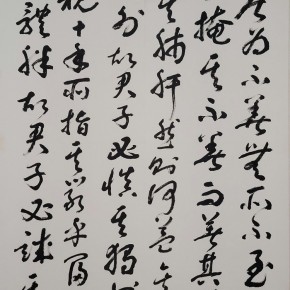 居为不善無所不至
掩其不善而著其
其肺肝然則何益
外故君子必慎其獨
視十手所指其嚴乎富
體胖故君子必誠其